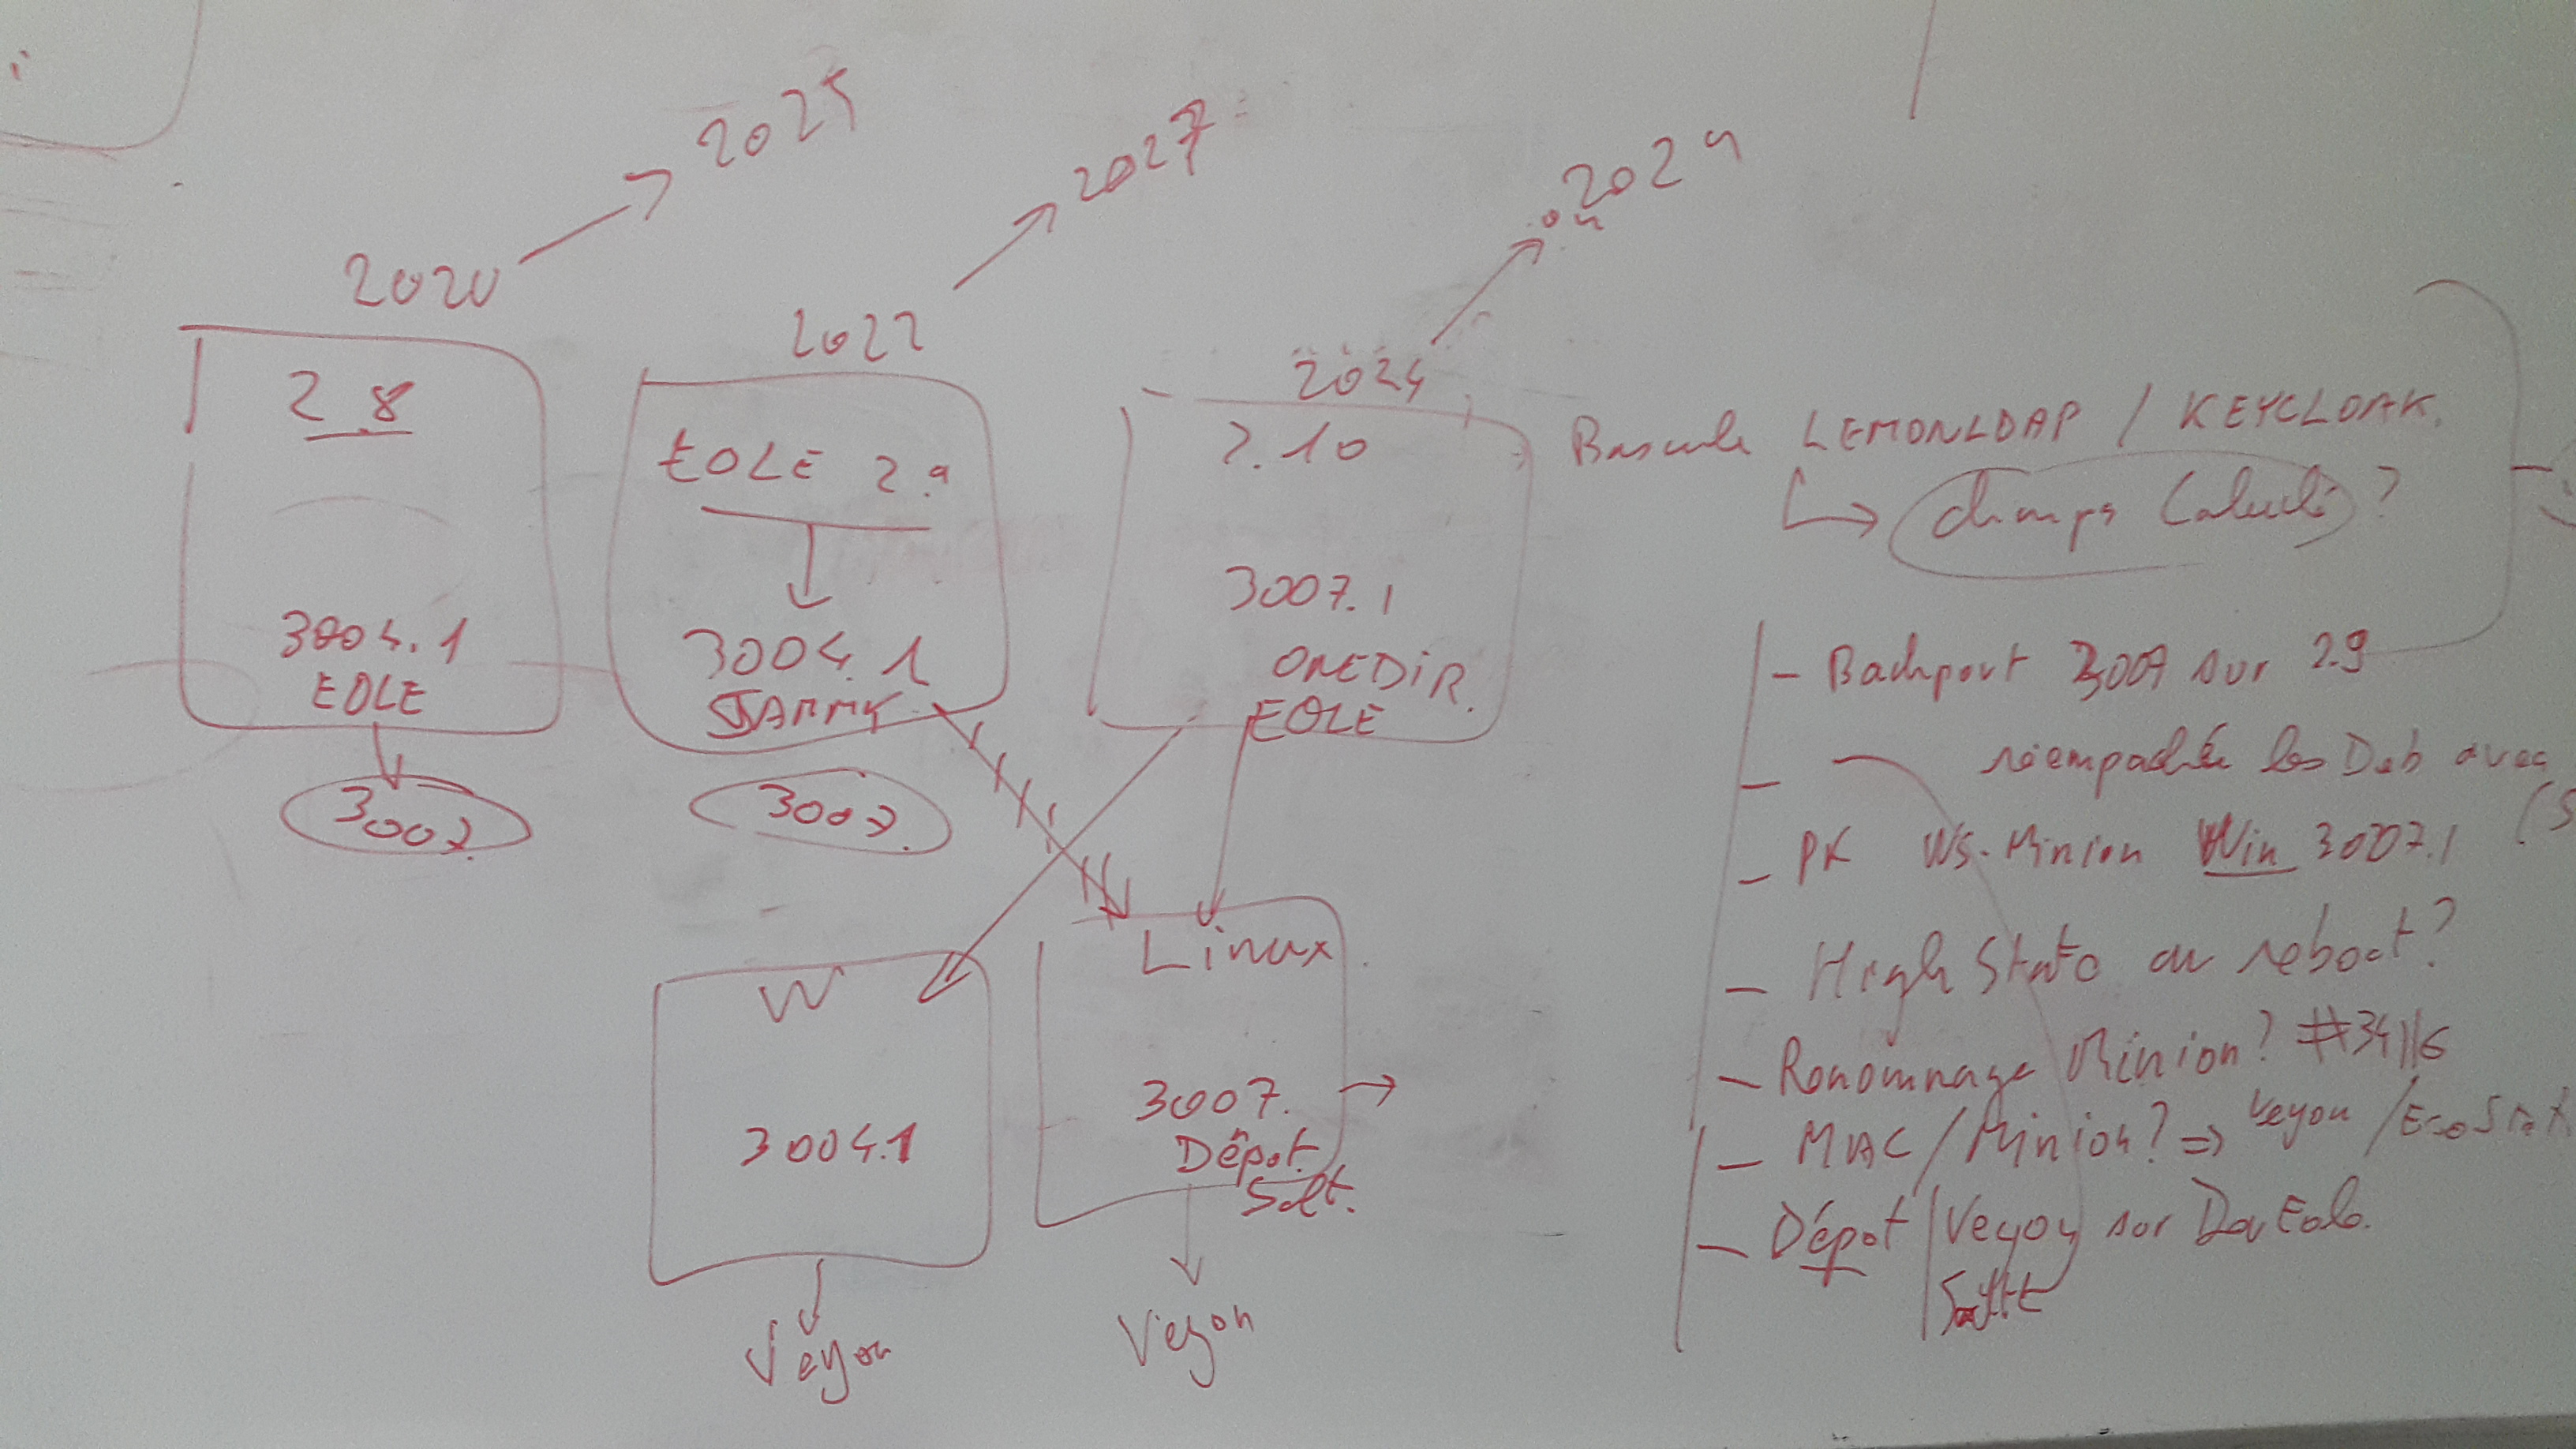 2020
2025
2.8
3004.1
EOLE
3007.
2022
2027
EOLE 2.9
3004.1
3007.
2024
2029
04
2.10
3007.1
ONEDIR.
EOLE
W
3004.1
Veyon
Linux
3007.
Dépot
Salt.
Veyon
Bascule LEMONLDAP / KEYCLOAK.
champs Calculé ?
- Backport 3007 sur 2.9
- réempaqueter les Deb avec
- PK WS-Minion Win 3007.1
- High State au reboot ?
- Renommage Minion ? #34116
- MAC / Minion ? => Veyon /
- Dépot Veyon sur Dev Eole.
Salt